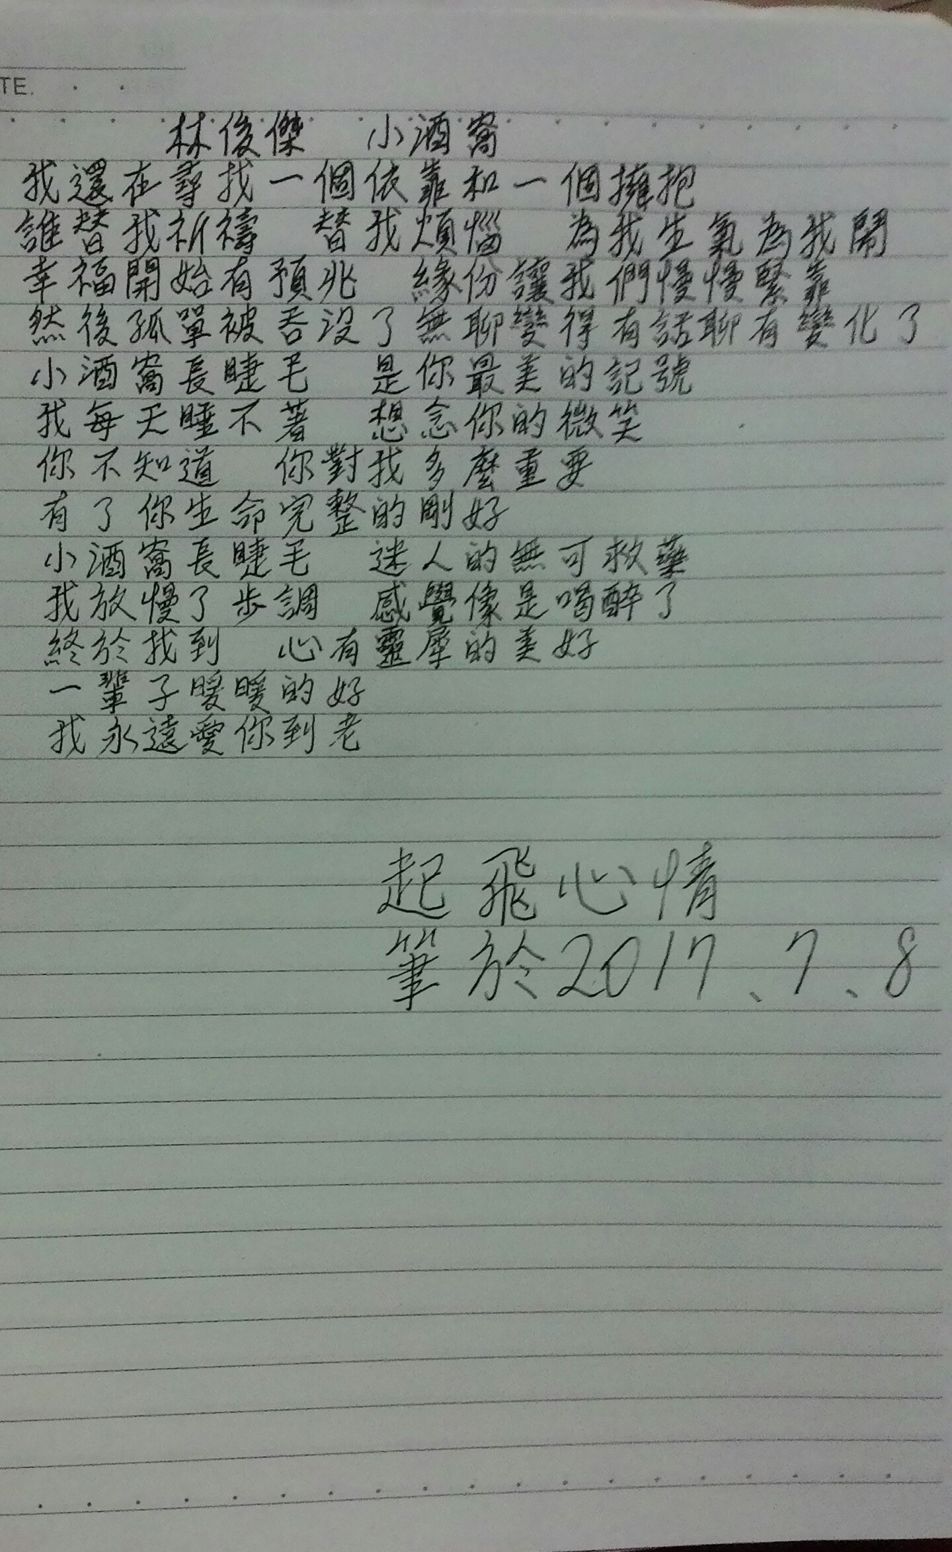 TE.
林俊傑 小酒窩
我還在尋找一個依靠和一個擁抱
誰替我祈禱 替我煩惱 為我生氣為我鬧
幸福開始有預兆 緣份讓我們慢慢緊靠
然後孤單被吞沒了無聊變得有話聊有變化了
小酒窩長睫毛 是你最美的記號
我每天睡不著 想念你的微笑
你不知道 你對我多麼重要
有了你生命完整的剛好
小酒窩長睫毛 迷人的無可救藥
我放慢了步調 感覺像是喝醉了
終於找到 心有靈犀的美好
一輩子暖暖的好
我永遠愛你到老
起飛心情
筆於2017、7、8